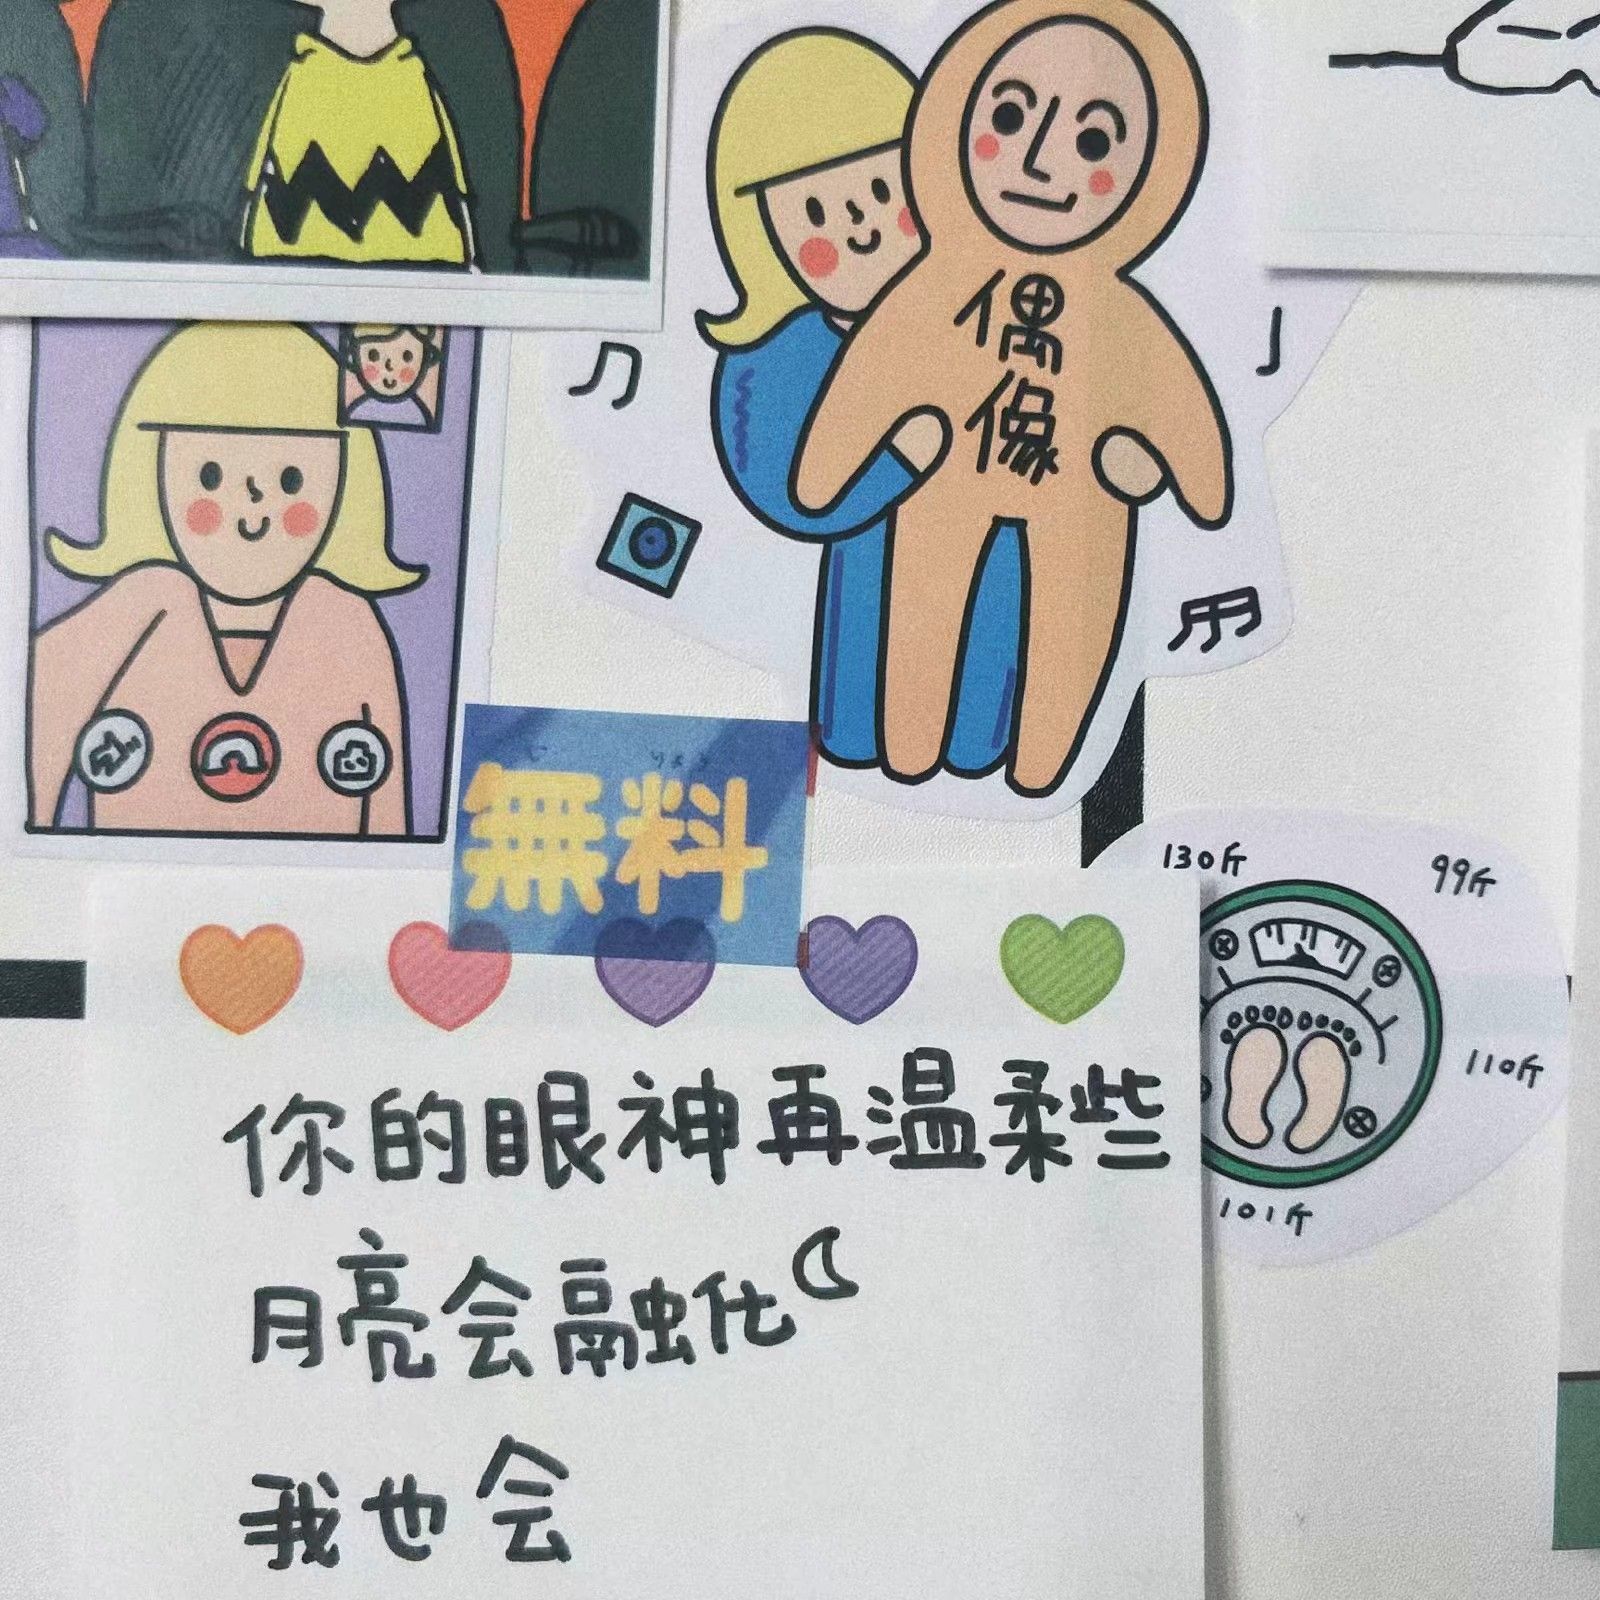 偶
像
無料
130斤
99斤
110斤
101斤
你的眼神再温柔些
月亮会融化
我也会